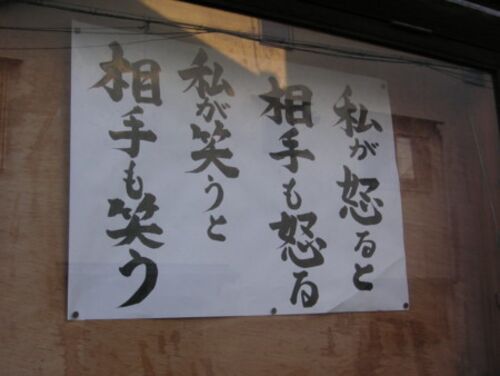 私が怒ると
相手も怒る
私が笑うと
相手も笑う